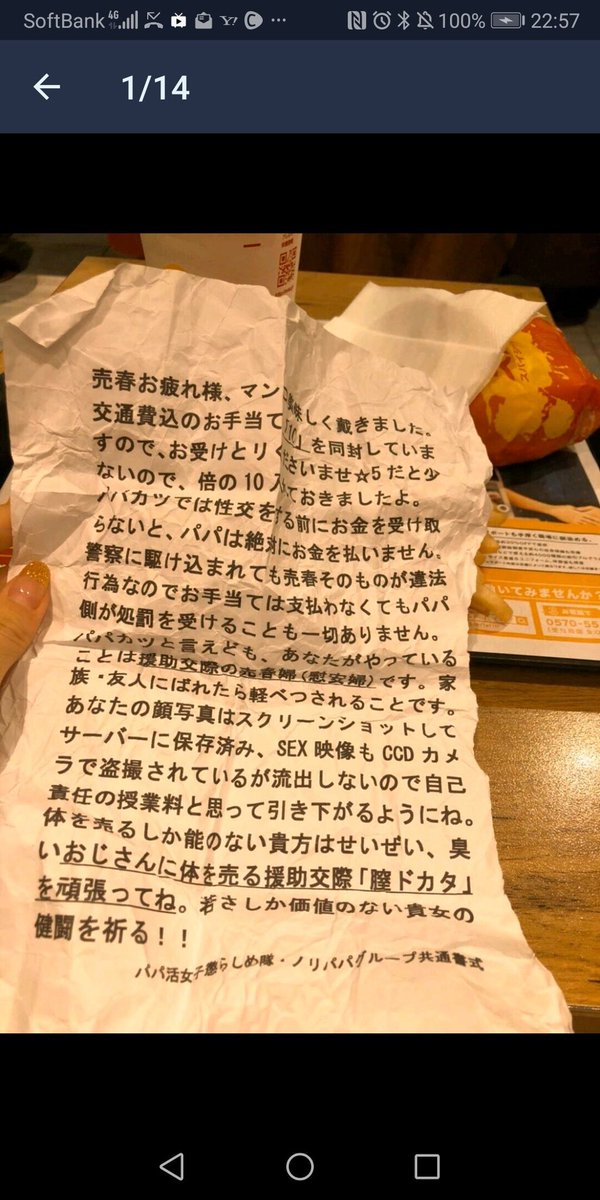 SoftBank 4G 100% 22:57
1/14
売春お疲れ様、マン 味しく戴きました。
交通費込のお手当て「10」を同封していま
すので、お受けとりくださいませ☆5だと少
ないので、倍の10入れておきましたよ。
パパカツでは性交をする前にお金を受け取
らないと、パパは絶対にお金を払いません。
警察に駆け込まれても売春そのものが違法
行為なのでお手当ては支払わなくてもパパ
側が処罰を受けることも一切ありません。
パパカツと言えども、あなたがやっている
ことは援助交際の売春婦(慰安婦)です。家
族・友人にばれたら軽べつされることです。
あなたの顔写真はスクリーンショットして
サーバーに保存済み、SEX映像もCCDカメ
ラで盗撮されているが流出しないので自己
責任の授業料と思って引き下がるようにね。
体を売るしか能のない貴方はせいぜい、臭
いおじさんに体を売る援助交際「膣ドカタ」
を頑張ってね。若さしか価値のない貴女の
健闘を祈る!!
パパ活女子懲らしめ隊・ノリパパグループ共通書式
ポートも手厚く職場に馴染める。
いてみませんか?
0570-55